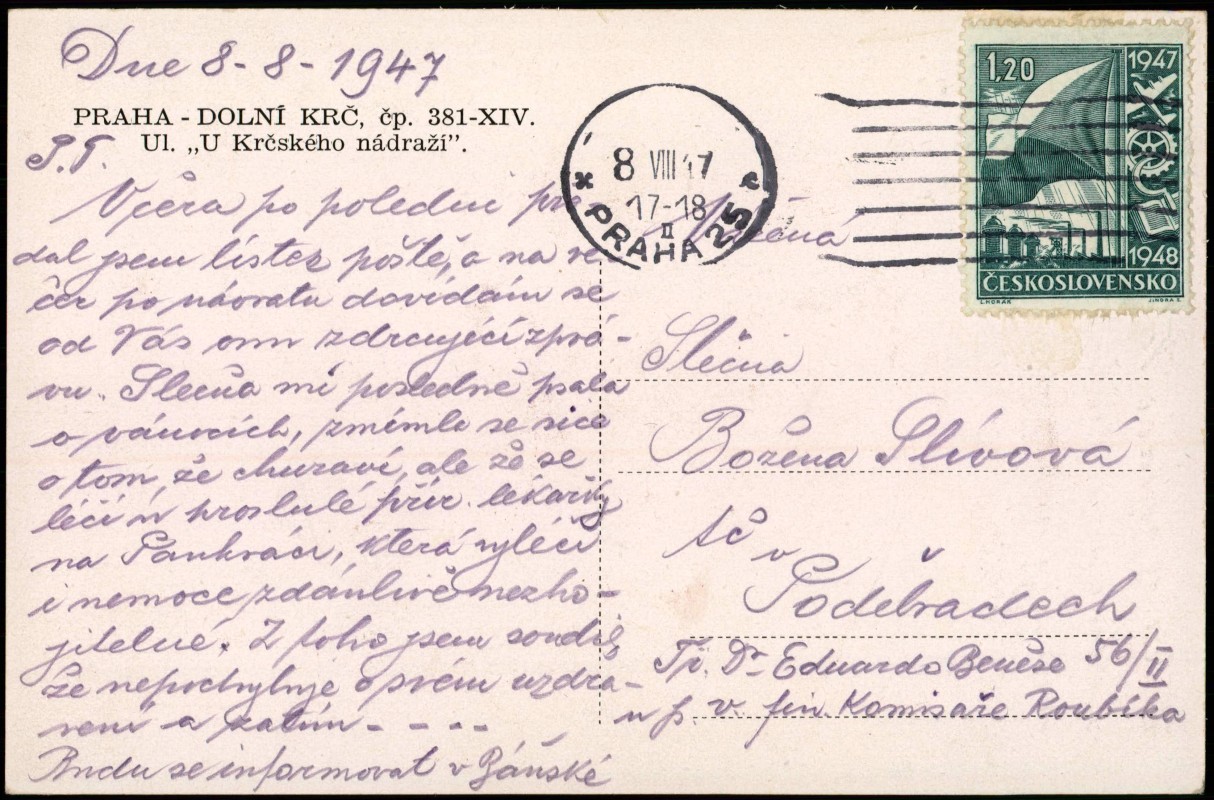 Dne 8-8-1947
PRAHA - DOLNÍ KRČ, čp. 381-XIV.
Ul. „U Krčského nádraží”.
P.T.
Včera po poledni pře
dal jsem lístek poště, a na ve
čer po návratu dovídám se
od Vás onu zdrcující zprá-
vu. Slečna mi posledně psala
o vánocích, zmínila se sice
o tom, že churaví, ale že se
léčí u proslulé přír. lékařky
na Pankráci, která vyléčí
i nemoce zdánlivě nezho-
jitelné. Z toho jsem soudil,
že nepochybuje o svém uzdra-
vení a zatím - - - -
Budu se informovat v Báňské
8 VIII 47
17-18
II
PRAHA 25
1,20
1947
1948
ČESKOSLOVENSKO
Slečna
Božena Slívová
tč
v
Poděbradech
Tř. Dr Eduarda Beneše 56/II
u p. v. fin Komisaře Roubíka